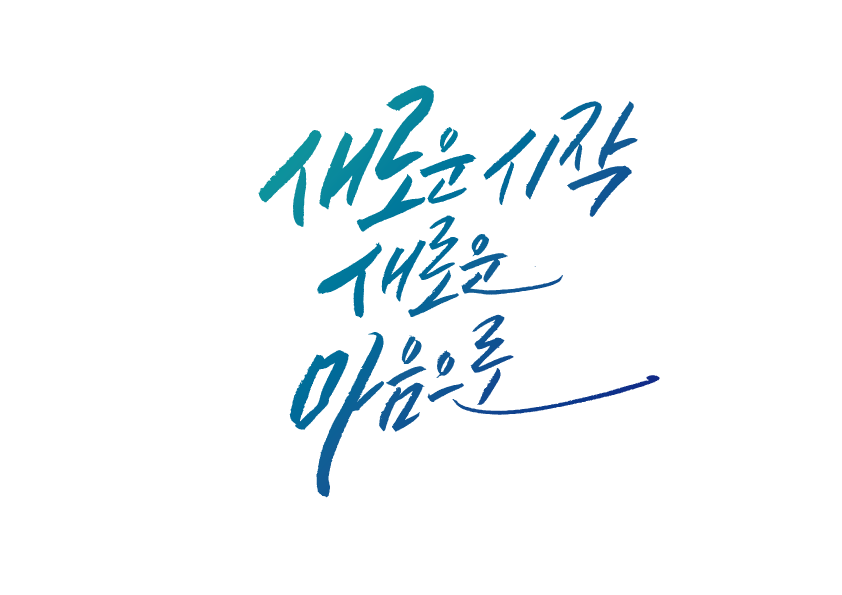 새로운 시작
새로운
마음으로